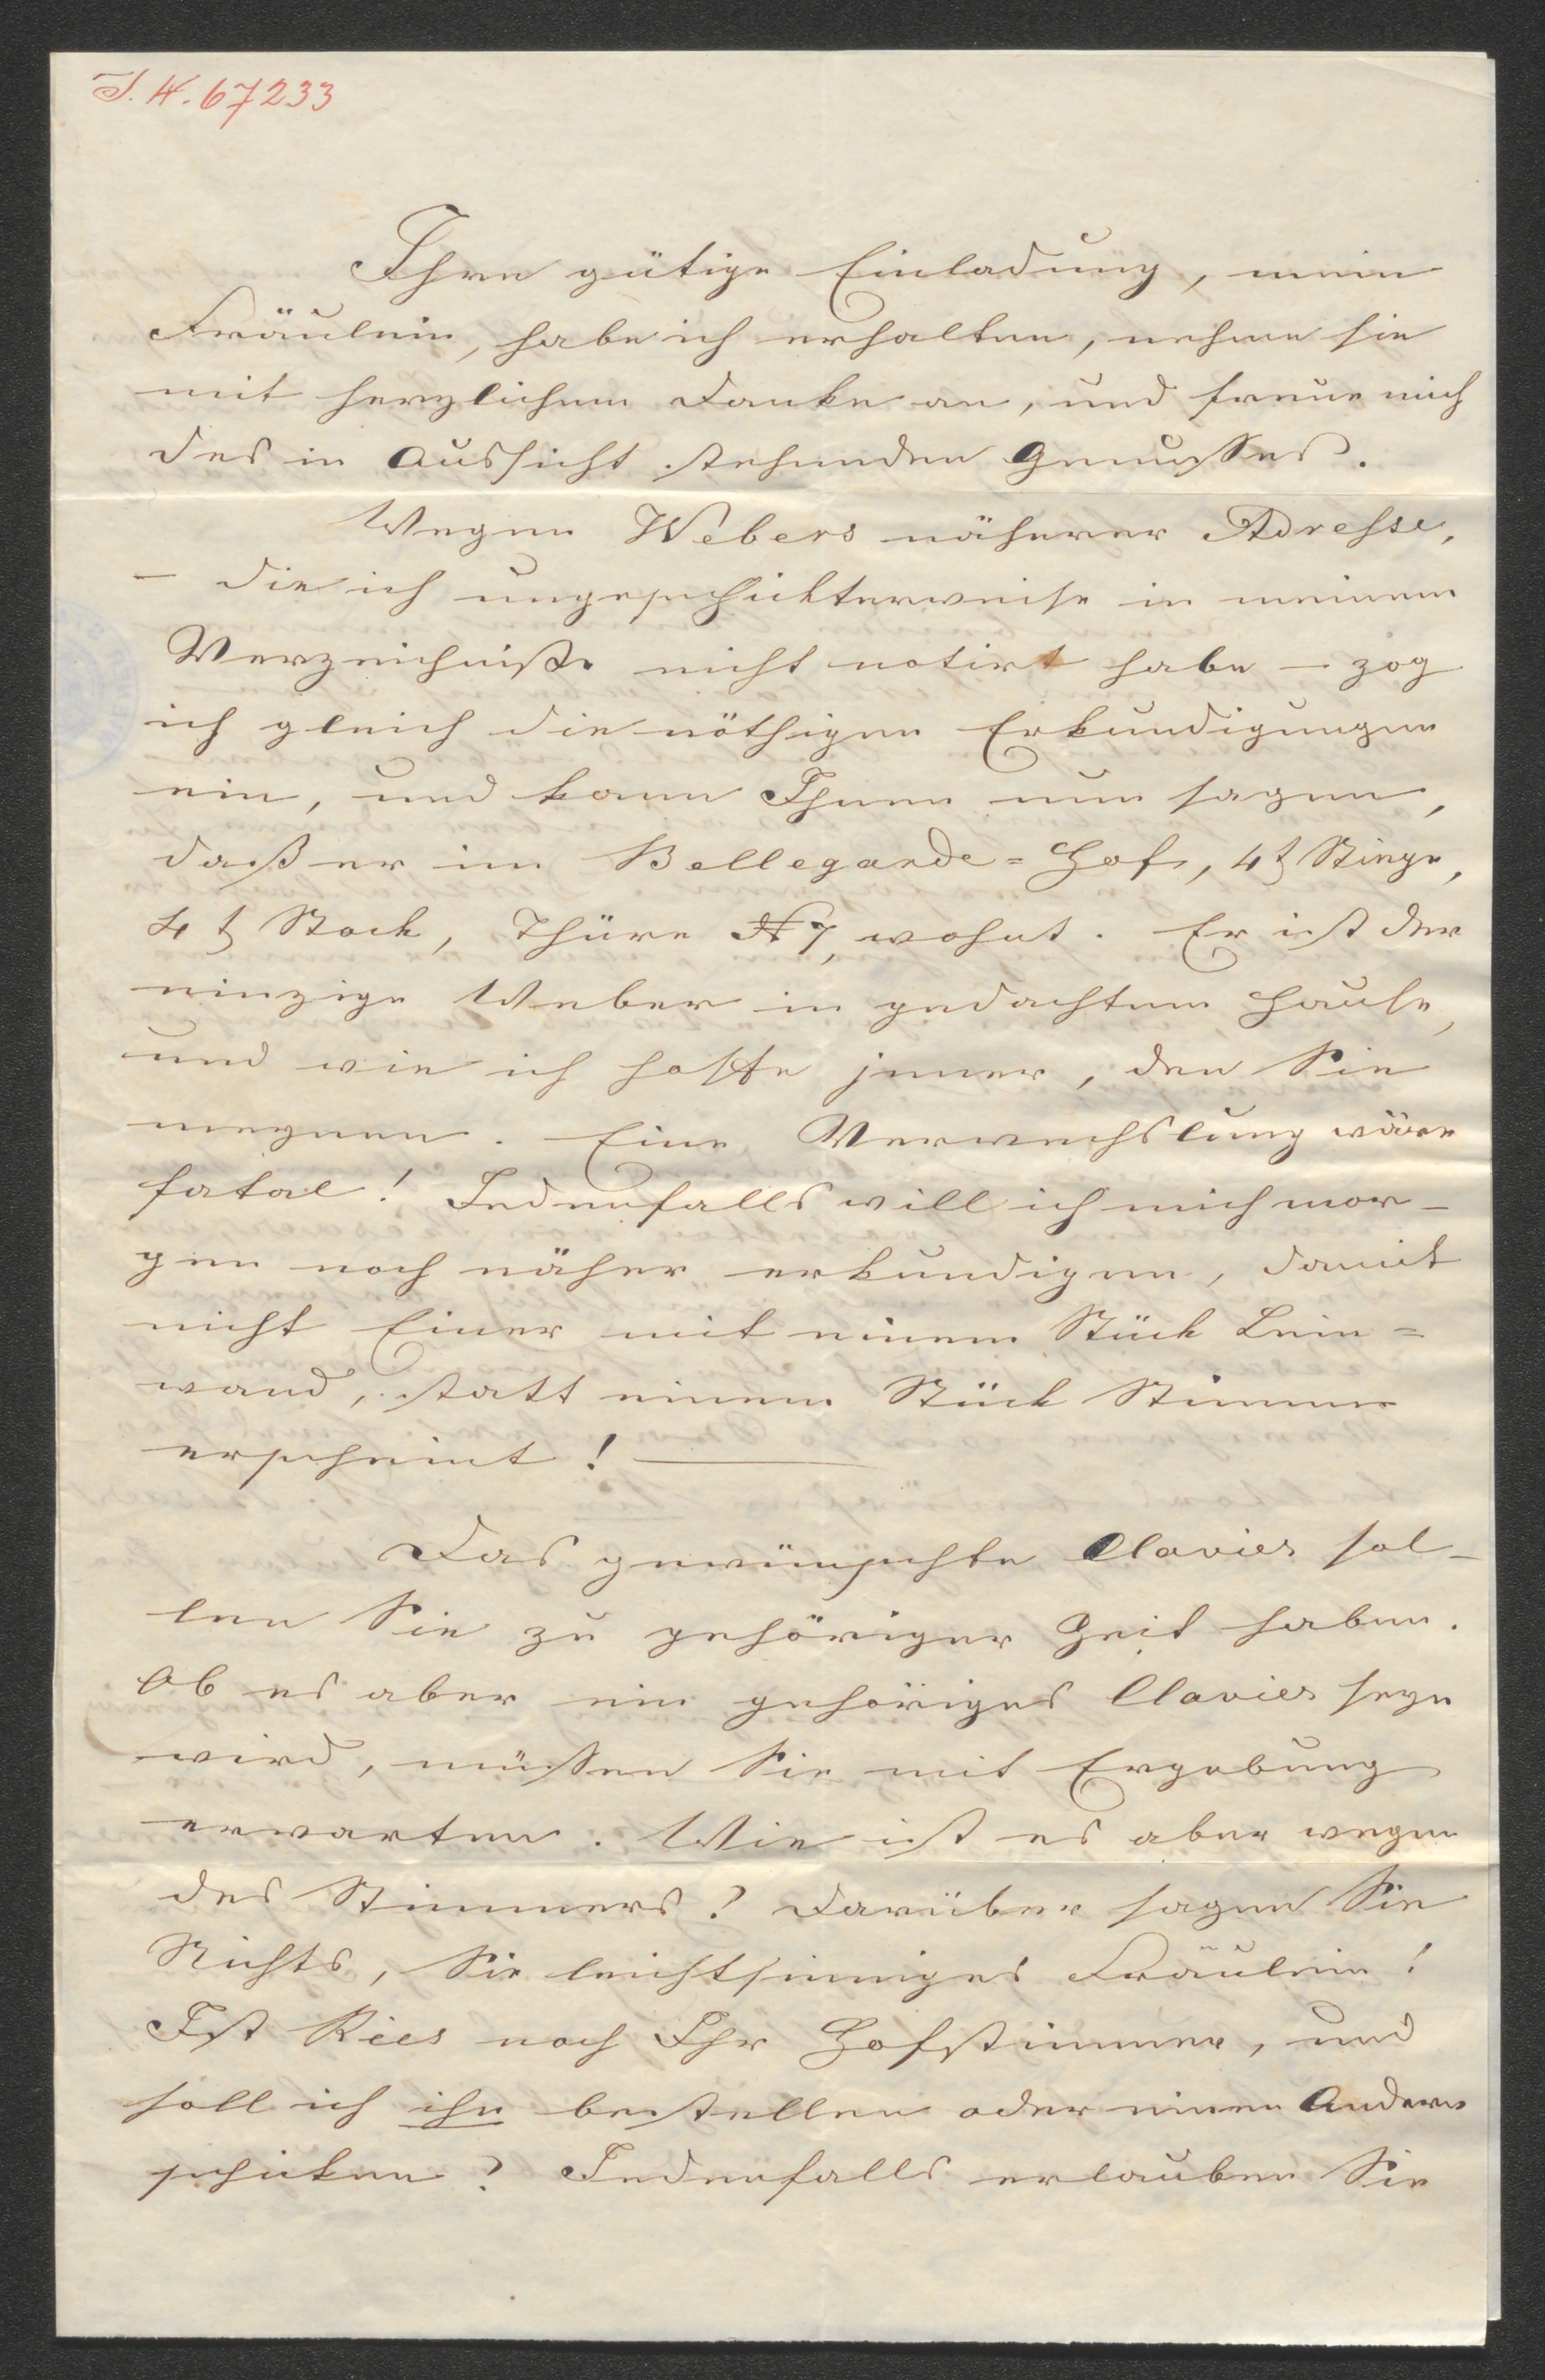 I. N. 67233
Ihre gütige Einladung, mein
Fräulein, habe ich erhalten, nehme sie
mit herzlichem Danke an, und freue mich
des in Aussicht stehenden Genusses.
Wegen Webers näherer Adresse,
– die ich ungeschickterweise in meinem
Verzeichniße nicht notirt habe – zog
ich gleich die nöthigen Erkundigungen
ein, und kann Ihnen nun sagen,
daß er im Bellegarde=Hof, 4t Stiege,
4t Stock, Thüre N 7, wohnt. Er ist der
einzige Weber in gedachtem Hause,
und wie ich hoffe jener, den Sie
meynen. Eine Verwechslung wäre
fatal! Jedenfalls will ich mich mor-
gen noch näher erkundigen, damit
nicht Einer mit einem Stück Lein=
wand, statt einem Stück Stimme
erscheint! —
Das gewünschte Clavier sol-
len Sie zu gehöriger Zeit haben.
Ob es aber ein gehöriges Clavier seyn
wird, müssen Sie mit Ergebung
erwarten. Wie ist es aber wegen
des Stimmers? Darüber sagen Sie
Nichts, Sie leichtsinniges Fräulein!
Ist Ries noch Ihr Hofstimmer, und
soll ich ihn bestellen oder einen Andern
schicken? Jedenfalls erlauben Sie